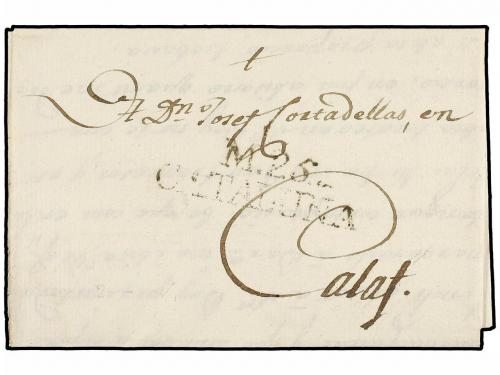 +
A Dn. Josef Cortadellas, en
M.25.
CATALUÑA
Calaf.